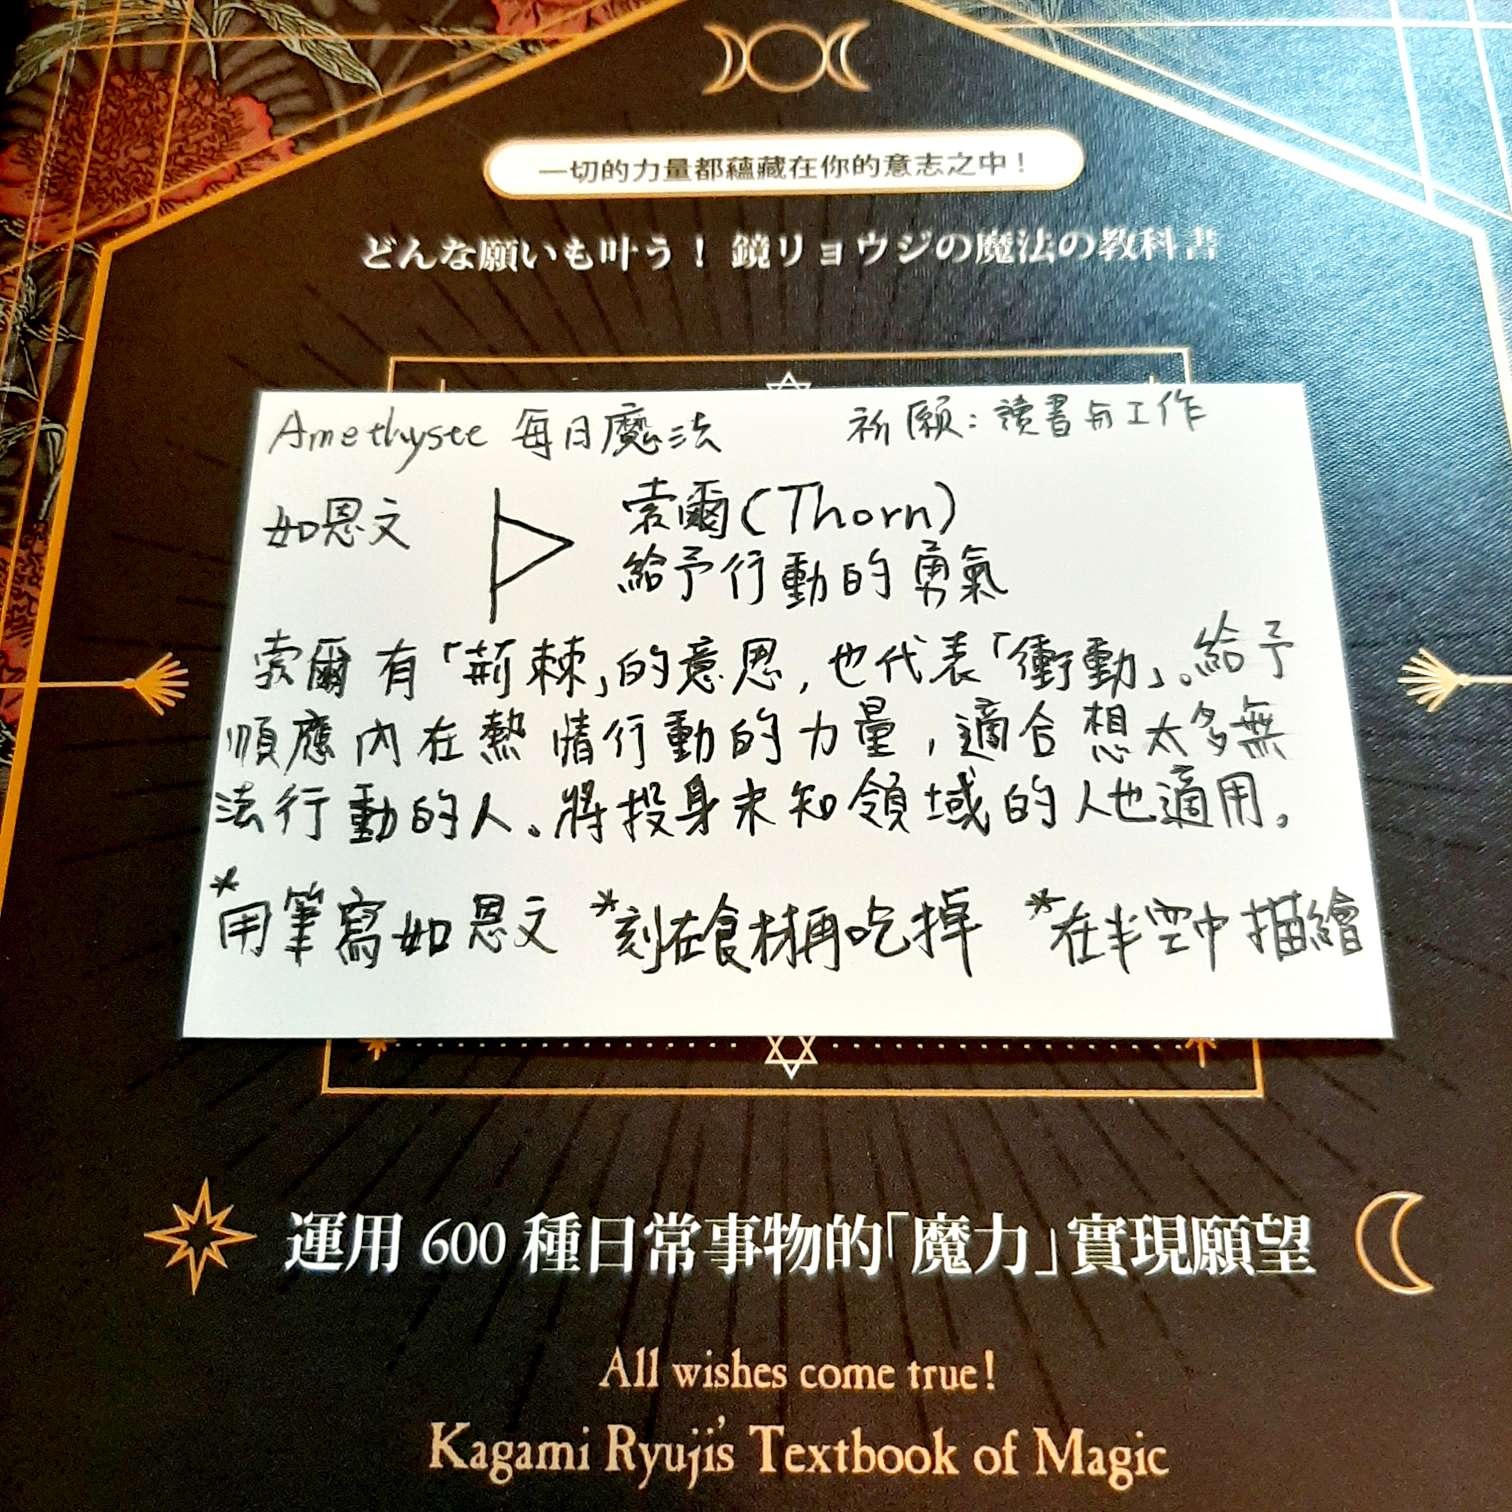 一切的力量都蘊藏在你的意志之中！
どんな願いも叶う！ 鏡リュウジの魔法の教科書
Amethystt 每日魔法 祈願：讀書与工作
如恩文 索爾(Thorn)
給予行動的勇氣
索爾有「荊棘」的意思，也代表「衝動」。給予
順應內在熱情行動的力量，適合想太多無
法行動的人。將投身未知領域的人也適用。
*用筆寫如恩文 *刻在食材再吃掉 *在半空中描繪
運用 600 種日常事物的「魔力」實現願望
All wishes come true!
Kagami Ryuji's Textbook of Magic